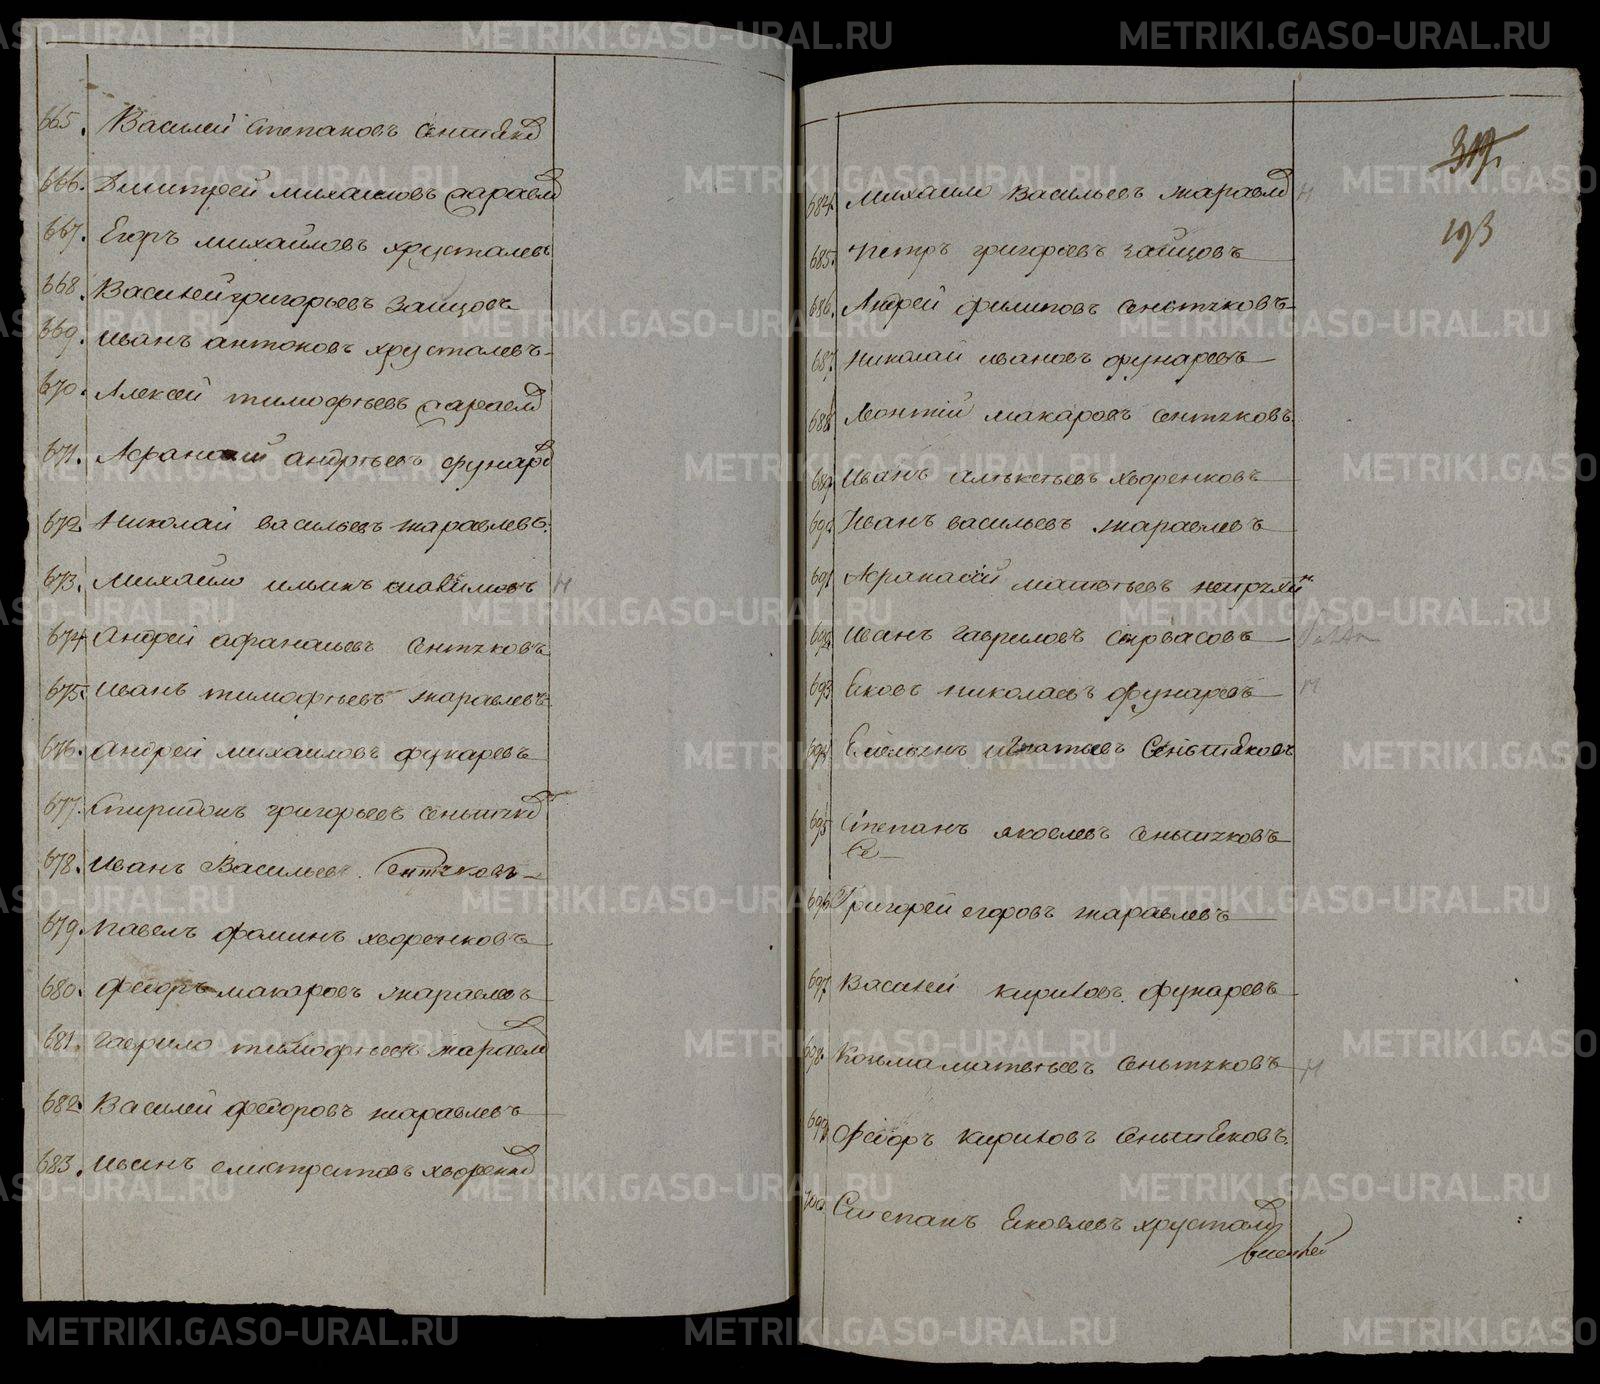 665. Василей Степановъ Сентяко
666. Дмитрей михаиловъ жаравле
667. Егоръ михайловъ хрусталевъ
668. Василей григорьевъ Заицовъ
669. иванъ антоновъ хрусталевъ
670. Алексей тимофѣевъ жаравле
671. Афанасий андрѣевъ фунаре
672 Николай васильевъ жаравлевъ.
673. Михайло ильинъ
674 андрей афанасьевъ сентяковъ
675. иванъ тимофѣевъ жаравлевъ
676. андрей михаиловъ фунаревъ
677. Спиридонъ григорьевъ сеньтяко
678. иванъ Васильев. Сентяковъ
679. павелъ фоминъ хворенковъ
680. федоръ макаровъ жаравлевъ
681. гаврило тимофѣевъ жаравле
682 Василей федоровъ жаравлевъ
683. иванъ елистратовъ хворенко
319.
193
684. Михаило Васильевъ жаравле
685. петръ григорьевъ зайцовъ
686. Андрей филиповъ сеньтяковъ
687. николай ивановъ фунаревъ
688. Леонтий макаровъ сентяковъ.
689 Иванъ алѣксѣевъ хворенковъ
690. Иванъ васильевъ жаравлевъ
691 Афанасей матвѣевъ
692. иванъ гавриловъ
693 Яковъ николаевъ фунаревъ
694 Емельянъ игнатьевъ Сеньтяковъ
695 Степанъ яковлевъ сеньтяковъ
696 Григорей егоровъ жаравлевъ
697. Василей кириловъ. фунаревъ
698. Козьма матвѣевъ сеньтяковъ
699 федоръ кириловъ сеньтяковъ.
700 Степанъ Яковлевъ хрустале